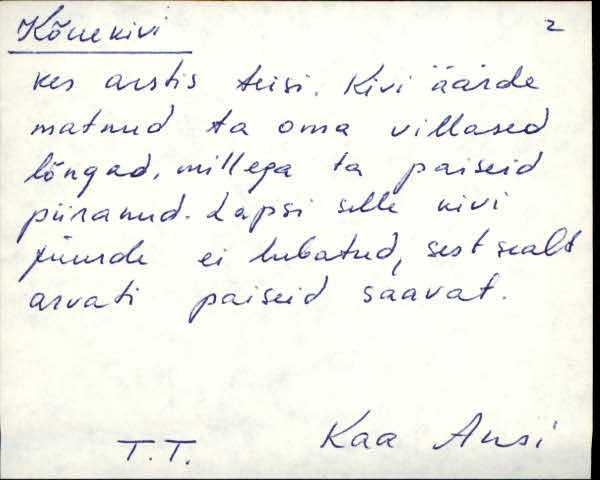 Kõuekivi 2
kes arstis teisi. Kivi äärde
matnud ta oma villased
lõngad, millega ta paiseid
piiranud. Lapsi selle kivi
juurde ei lubatud, sest sealt
arvati paiseid saavat.
T.T. Kaa Ansi